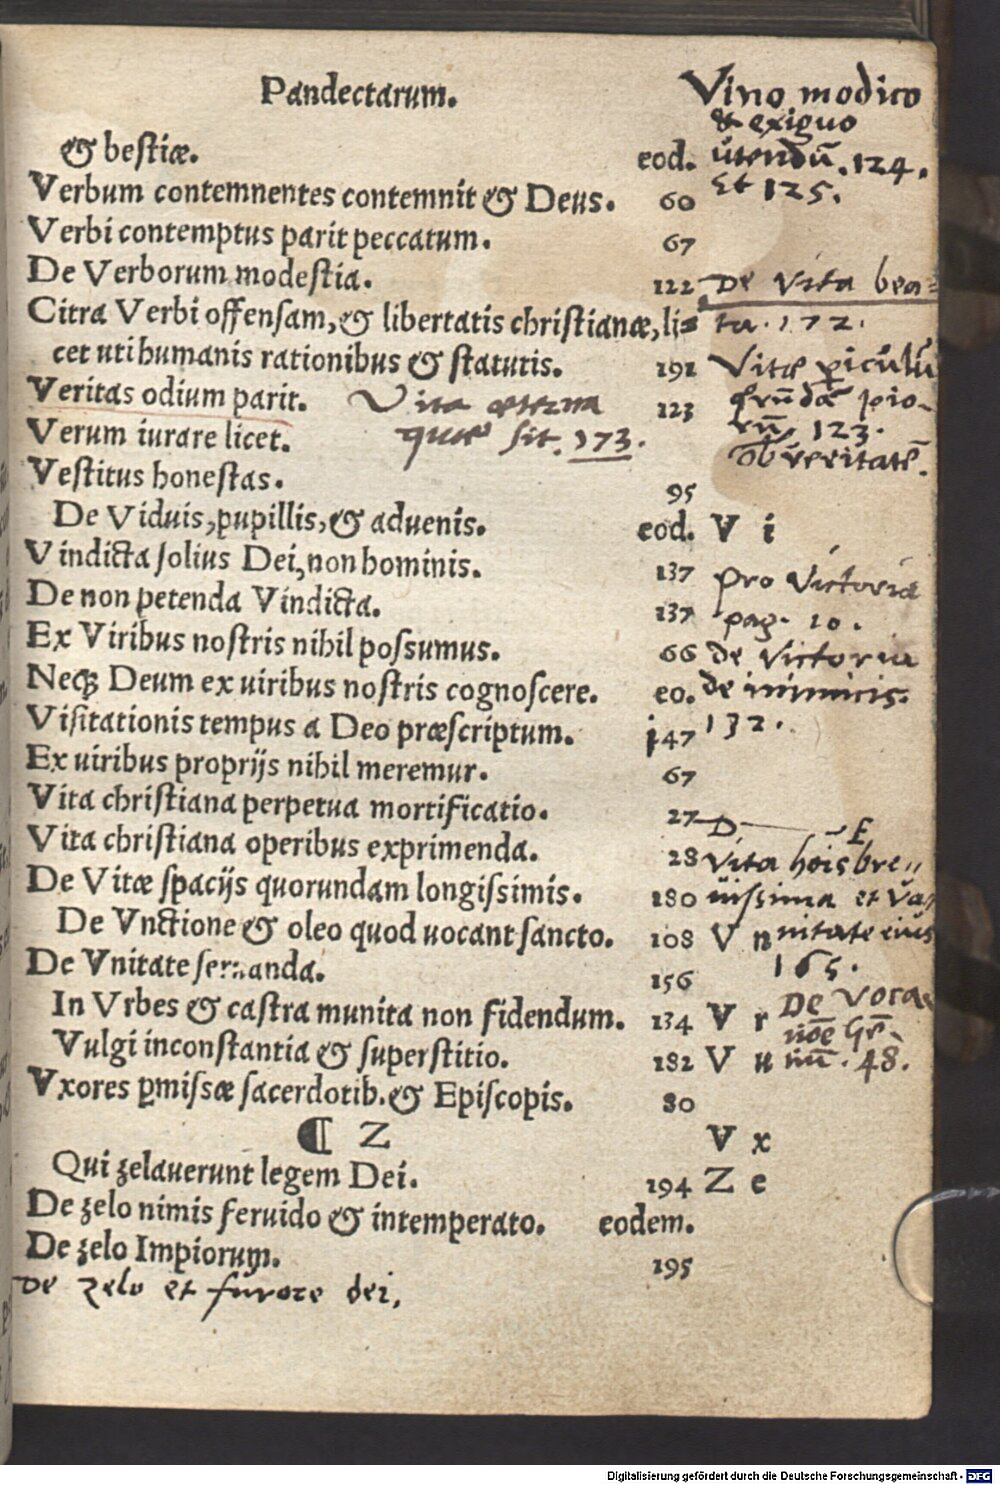 Pandectarum.
Vino modico
& exiguo
& bestiæ. eod.
utendū. 124.
Et 125.
Verbum contemnentes contemnit & Deus. 60
Verbi contemptus parit peccatum. 67
De Verborum modestia. 122
De Vita bea=
ta. 172.
Citra Verbi offensam, & libertatis christianæ, li=
cet uti humanis rationibus & statutis. 191
Vitæ piculū
qrūdā pio-
rū, 123.
ob veritatē.
Veritas odium parit. 123
Vita æterna
quæ sit. 173.
Verum iurare licet.
Vestitus honestas. 95
De Viduis, pupillis, & aduenis. eod. V i
Vindicta solius Dei, non hominis. 137
pro Victoria
pag. 10.
De non petenda Vindicta. 137
Ex Viribus nostris nihil possumus. 66
de Victoria
de inimicis.
132.
Neqꝫ Deum ex uiribus nostris cognoscere. eo.
Visitationis tempus a Deo præscriptum. 147
Ex uiribus proprijs nihil meremur. 67
Vita christiana perpetua mortificatio. 27
Vita christiana operibus exprimenda. 28
Vita hoīs bre=
uissima et Va=
nitate eius
165.
De Vitæ spacijs quorundam longissimis. 180
De Vnctione & oleo quod uocant sancto. 108 V n
De Vnitate seruanda. 156
In Vrbes & castra munita non fidendum. 134 V r
De Voca=
nōe Gē-
nū. 48.
Vulgi inconstantia & superstitio. 182 V u
Vxores ꝑmissæ sacerdotib. & Episcopis. 80
V x
¶ Z
Qui zelauerunt legem Dei. 194 Z e
De zelo nimis feruido & intemperato. eodem.
De zelo Impiorum. 195
De zelo et furore dei,
Digitalisierung gefördert durch die Deutsche Forschungsgemeinschaft - DFG